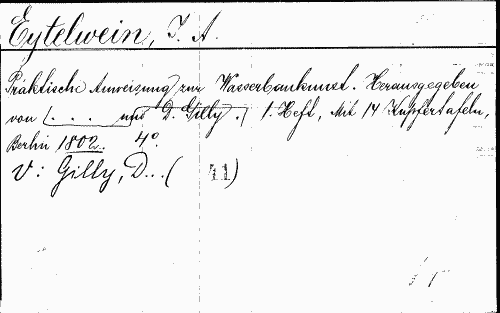 Eytelwein, J. A.
Praktische Anweisung zur Wasserbaukunst. Herausgegeben
von [. . . und D. Gilly.] 1. Heft, Mit 14 Kupfertafeln,
Berlin 1802. 4°.
V: Gilly, D...( 41)
1